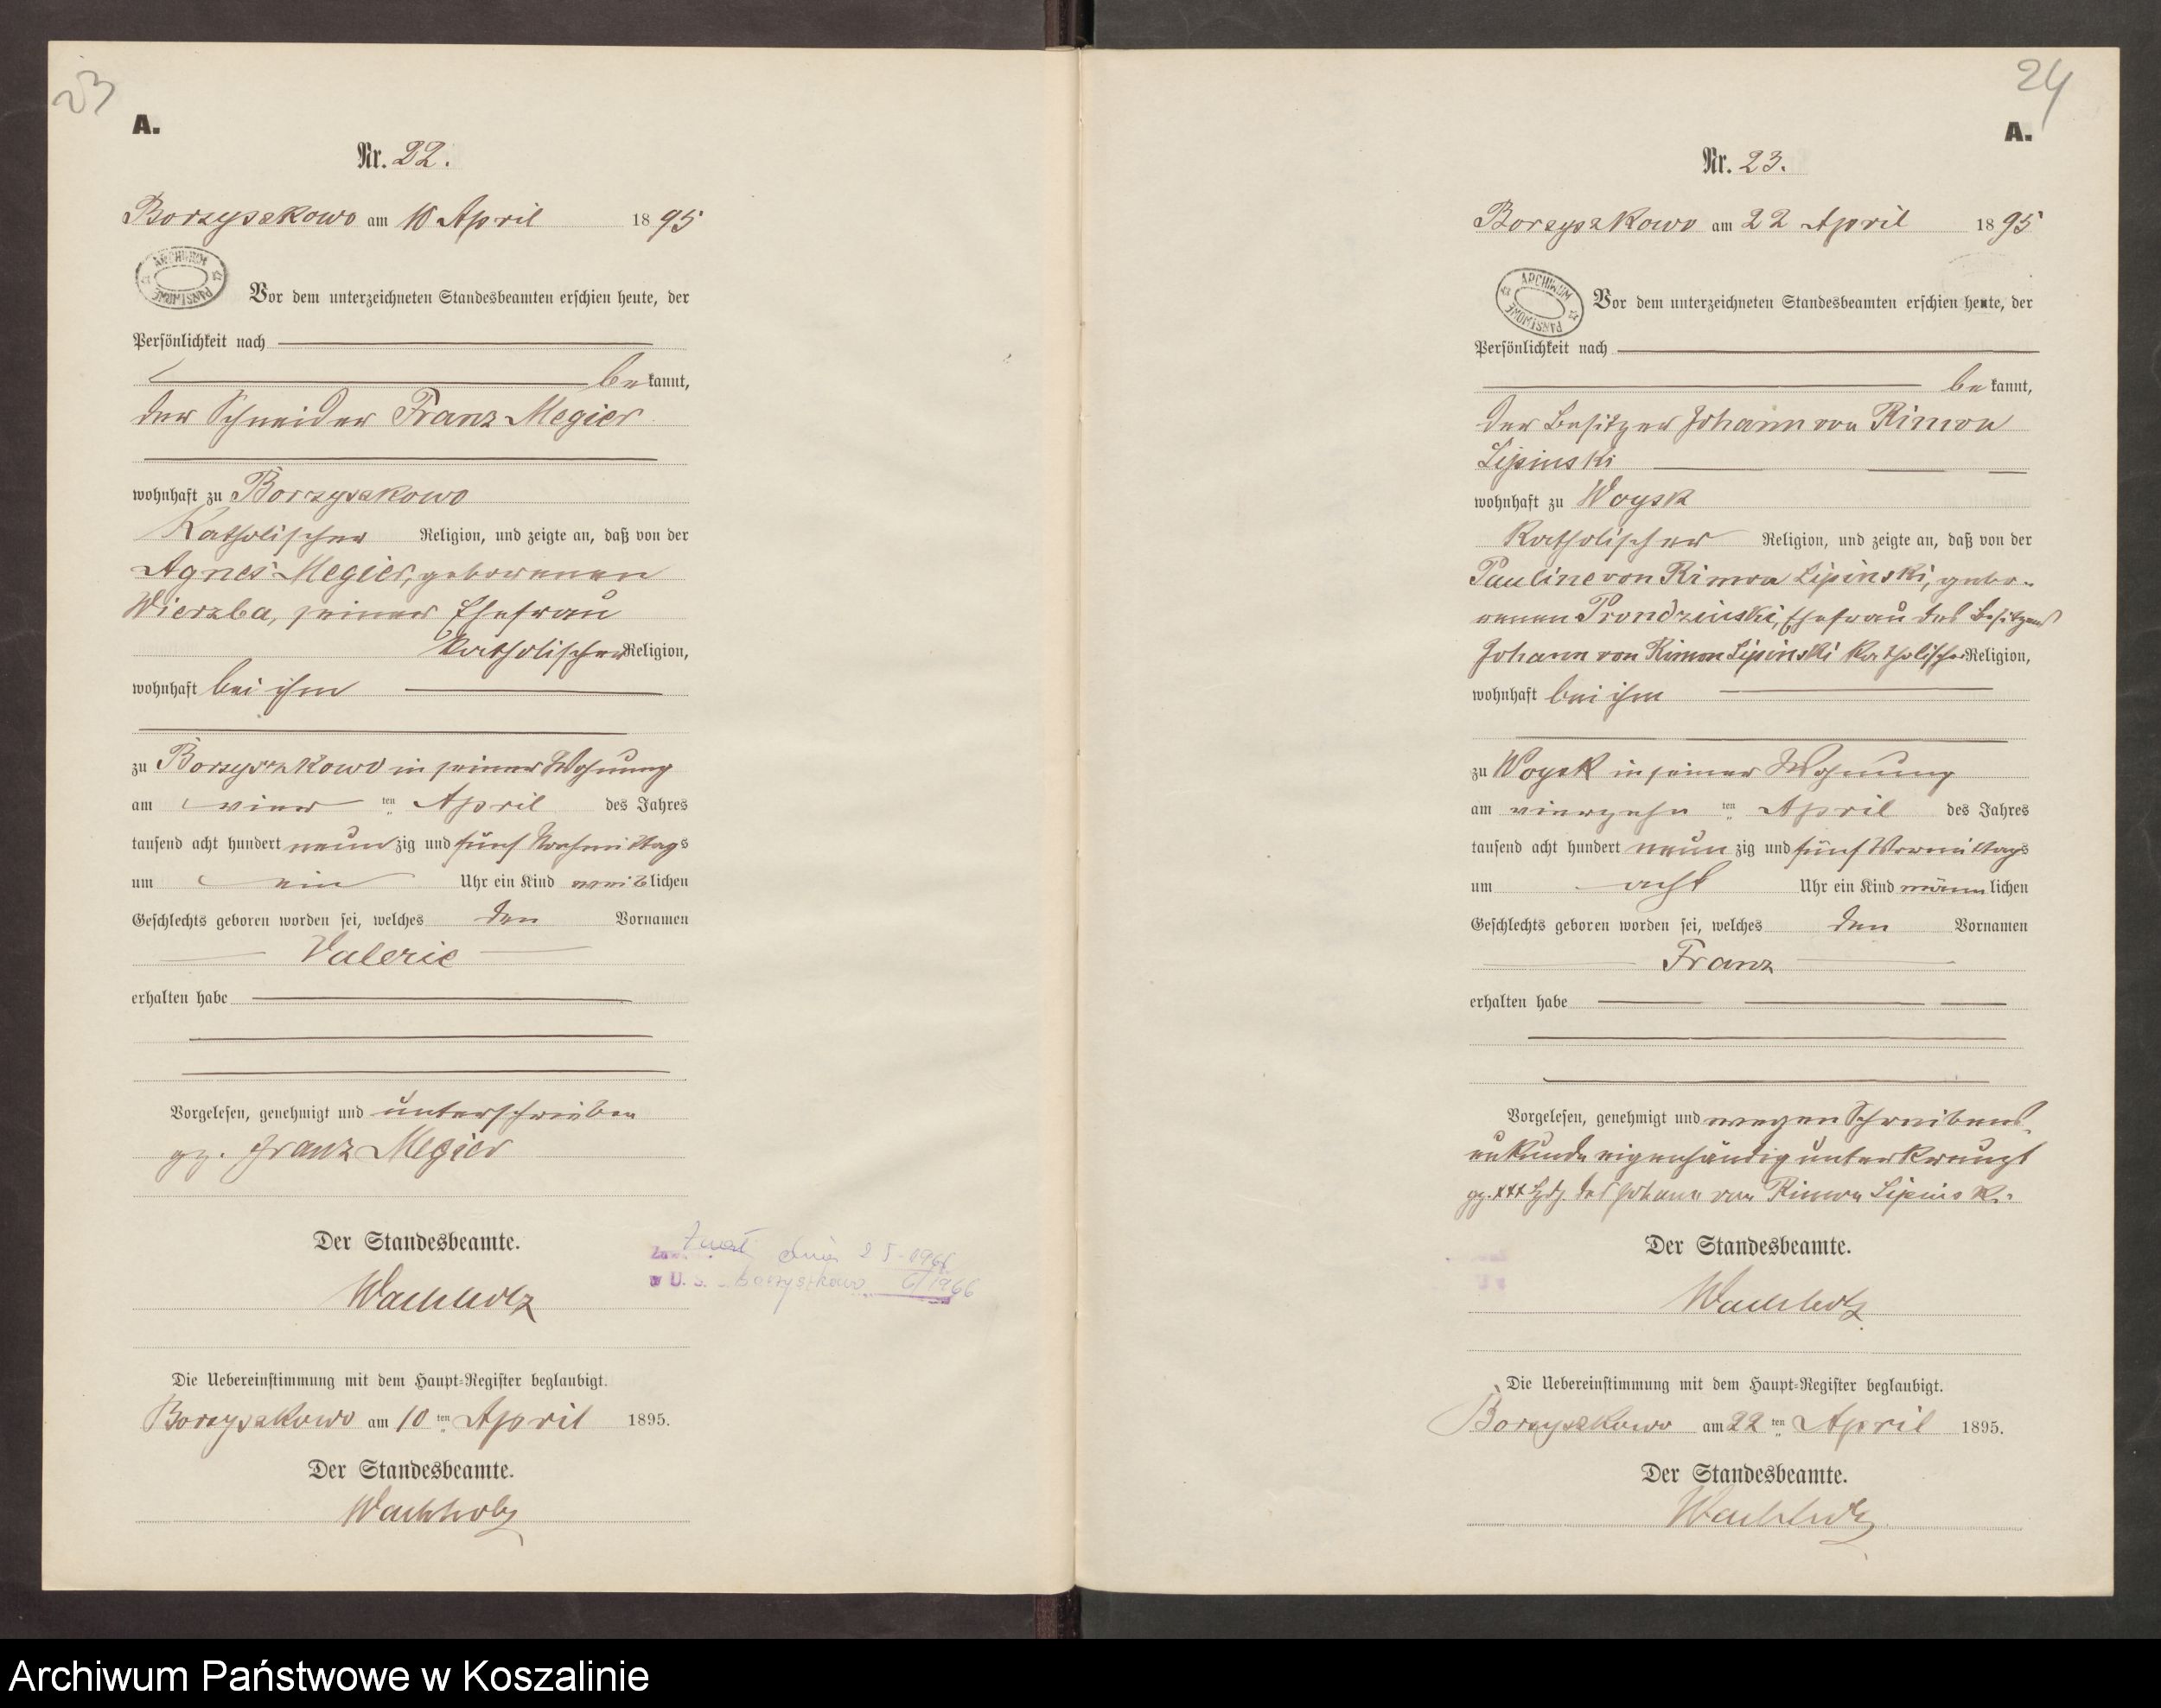 23
A.
Nr. 22.
Borzyszkowo am 10 April 1895
ARCHIWUM PAŃSTWOWE
Vor dem unterzeichneten Standesbeamten erschien heute, der
Persönlichkeit nach
bekannt,
der Schneider Franz Megier
wohnhaft zu Borzyszkowo
Katholischer Religion, und zeigte an, daß von der
Agnes Megier, geborenen
Wierzba, seiner Ehefrau
Katholischer Religion,
wohnhaft bei ihm
zu Borzyszkowo in seiner Wohnung
am vier ten April des Jahres
tausend acht hundert neunzig und fünf Nachmittags
um ein Uhr ein Kind weiblichen
Geschlechts geboren worden sei, welches den Vornamen
Valerie
erhalten habe
Vorgelesen, genehmigt und unterschrieben
gz. Franz Megier
Der Standesbeamte.
Wachholz
dnia 2 5 1966
w U. S. Borzyszkowo 6/1966
Die Uebereinstimmung mit dem Haupt-Register beglaubigt.
Borzyszkowo am 10 ten April 1895.
Der Standesbeamte.
Wachholz
24
A.
Nr. 23.
Borzyszkowo am 22 April 1895
ARCHIWUM PAŃSTWOWE
Vor dem unterzeichneten Standesbeamten erschien heute, der
Persönlichkeit nach
bekannt,
der Besitzer Johann von Rimon
Lipinski
wohnhaft zu Woysk
Katholischer Religion, und zeigte an, daß von der
Pauline von Rimon Lipinski, gebo-
renen Prondzinski, Ehefrau des Besitzers
Johann von Rimon Lipinski Katholischer Religion,
wohnhaft bei ihm
zu Woysk in seiner Wohnung
am vierzehn ten April des Jahres
tausend acht hundert neunzig und fünf Vormittags
um acht Uhr ein Kind männlichen
Geschlechts geboren worden sei, welches den Vornamen
Franz
erhalten habe
Vorgelesen, genehmigt und wegen Schreibens-
unkunde eigenhändig unterkreuzt
gz. +++ Hdz. des Johann von Rimon Lipinski
Der Standesbeamte.
Wachholz
Die Uebereinstimmung mit dem Haupt-Register beglaubigt.
Borzyszkowo am 22 ten April 1895.
Der Standesbeamte.
Wachholz
Archiwum Państwowe w Koszalinie